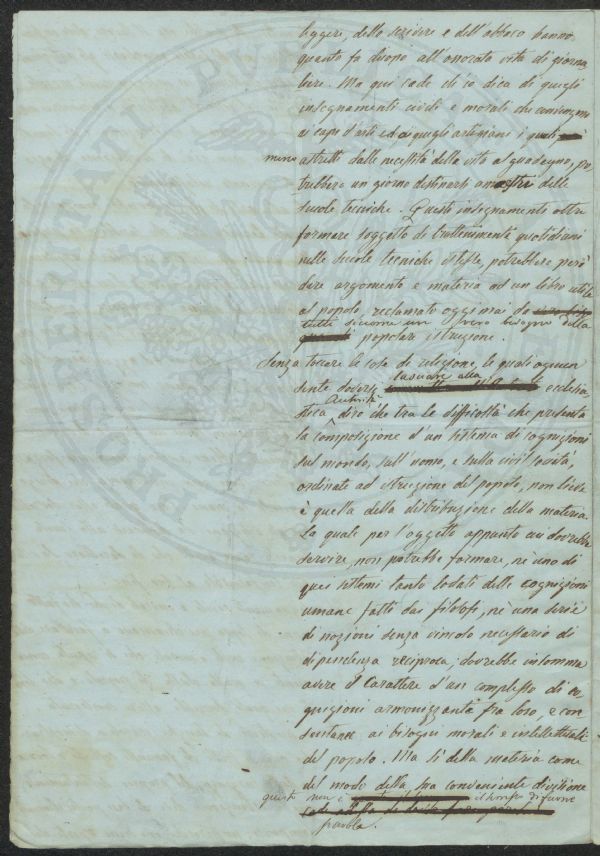 leggere, dello scrivere e dell'abbaco hanno
quanto fa duopo all'onorata vita di giorna
liere. Ma qui cade ch'io dica di quegli
insegnamenti civili e morali che convengono
ai capi d'arti ed a quegli artigiani i quali
meno astretti dalle necessità della vita al guadagno, po
trebbero un giorno destinarsi a maestri delle
scuole tecniche. Questi insegnamenti oltre
formare soggetto di trattenimenti quotidiani
nelle scuole tecniche istesse, potrebbero però
dare argomento e materia ad un libro utile
al popolo, reclamato oggimai da
tutti siccome un vero bisogno della
popolare istruzione.
Senza toccare le cose di religione, le quali ognun
sente doversi lasciare alla ecclesia
stica Autorità dirò che tra le difficoltà che presenta
la composizione d'un sistema di cognizioni
sul mondo, sull'uomo, e sulla civil società,
ordinate ad istruzione del popolo, non lieve
è quella della distribuzione della materia.
La quale per l'oggetto appunto cui dovrebbe
servire, non potrebbe formare, nè uno di
quei sistemi tanto lodati delle cognizioni
umane fatti dai filosofi, nè una serie
di nozioni senza vincolo necessario di
dipendenza reciproca; dovrebbe insomma
avere il carattere d'un complesso di co
gnizioni armonizzanti fra loro, e con
sentanee ai bisogni morali e intellettuali
del popolo. Ma sì della materia come
del modo della sua conveniente divisione
questo non è il luogo di farne
parola.
PROSPERITATI PVBLICAE